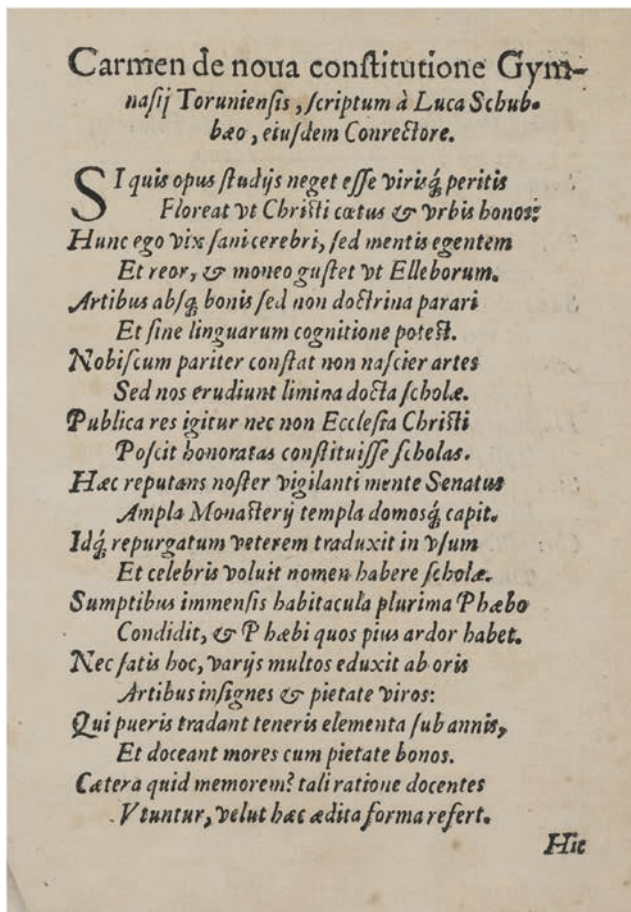 Carmen de noua constitutione Gym-
nasij Toruniensis, scriptum à Luca Schub-
bæo, eiusdem Conrectore.
SI quis opus studijs neget esse virisq́; peritis
Floreat vt Christi cœtus & vrbis honos:
Hunc ego vix sani cerebri, sed mentis egentem
Et reor, & moneo gustet vt Elleborum.
Artibus absq́; bonis sed non doctrina parari
Et sine linguarum cognitione potest.
Nobiscum pariter constat non nascier artes
Sed nos erudiunt limina docta scholæ.
Publica res igitur nec non Ecclesia Christi
Poscit honoratas constituisse scholas.
Hæc reputans noster vigilanti mente Senatus
Ampla Monasterij templa domosq́; capit.
Idq́; repurgatum veterem traduxit in vsum
Et celebris voluit nomen habere scholæ.
Sumptibus immensis habitacula plurima Phæbo
Condidit, & Phæbi quos pius ardor habet.
Nec satis hoc, varijs multos eduxit ab oris
Artibus insignes & pietate viros:
Qui pueris tradant teneris elementa sub annis,
Et doceant mores cum pietate bonos.
Cætera quid memorem? tali ratione docentes
Vtuntur, velut hæc ædita forma refert.
Hic